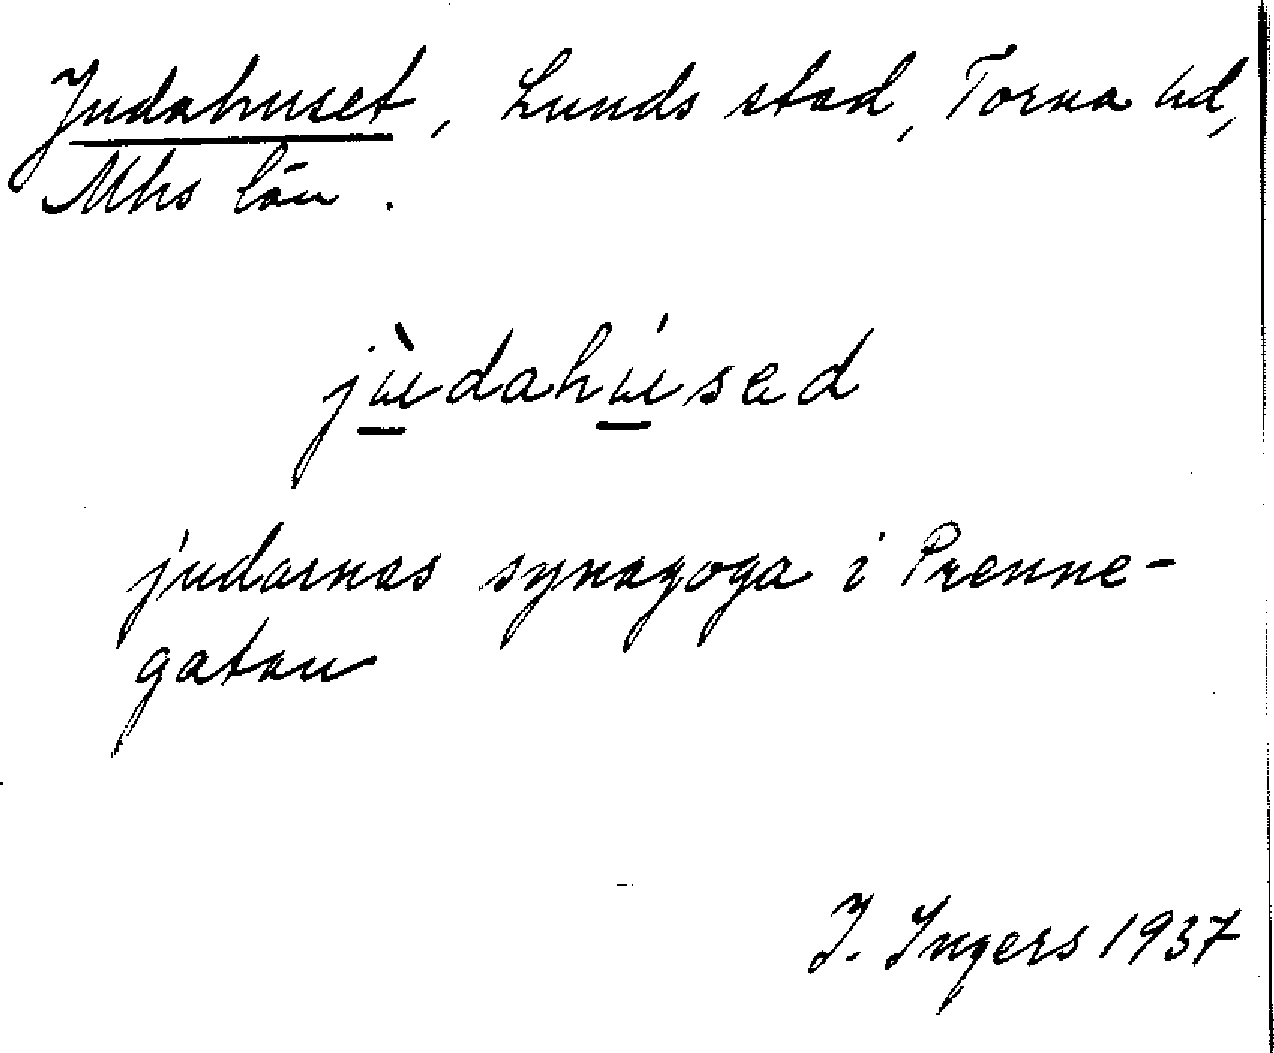 Judahuset, Lunds stad, Torna hd,
Mhs län.
jùdahúsad
judarnas synagoga i Prenne-
gatan
I. Ingers 1937